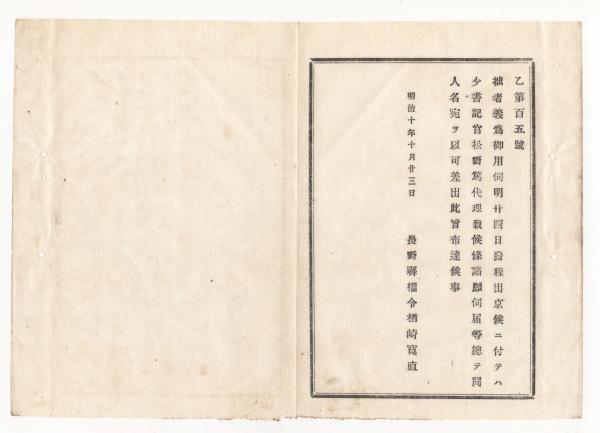 乙第百五號
拙者義爲御用伺明廿四日發程出京候ニ付テハ
少書記官松野篤代理致候條諸願伺屆等總テ同
人名宛ヲ以可差出此旨布達候事
明治十年十月廿三日
長野縣權令楢崎寬直